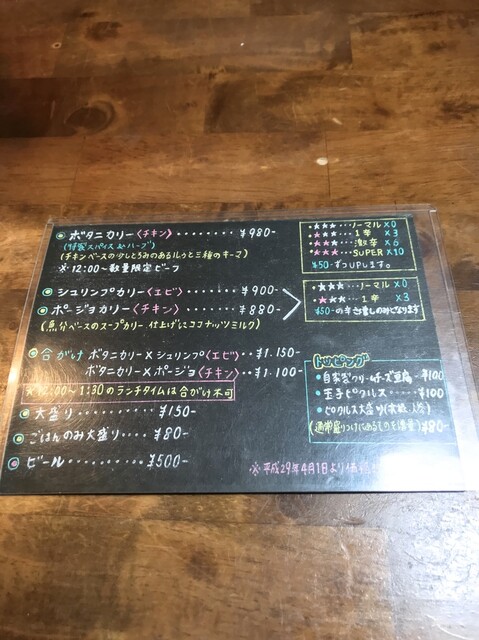 ボタニカリー〈チキン〉········¥980-
(特製スパイス&ハーブ)
(チキンベースの少しとろみのあるルゥと三種のキーマ)
※12:00〜数量限定ビーフ
★★★…ノーマル×0
★★★… 1辛 ×3
★★★… 激辛 ×6
★★★…SUPER×10
¥50-ずつUPします。
シュリンプカリー〈エビ〉····¥900-
ポージョカリー〈チキン〉·····¥880-
(魚介ベースのスープカリー 仕上げにココナッツミルク)
★★★…ノーマル×0
★★★… 1辛 ×3
¥50-の辛さ増しのみとなります
合がけ ボタニカリー×シュリンプ〈エビ〉··¥1.150-
ボタニカリー×ポージョ〈チキン〉··¥1.100-
のランチタイムは合がけ不可
大盛り·········¥150-
ごはんのみ大盛り····¥80-
ビール··········¥500-
トッピング
・自家製クリームチーズ豆腐…¥100
・玉子ピクルス……¥100
・ピクルス大盛り
(通常盛りつけにあるものを増量)¥80-
※平成29年4月1日より価格